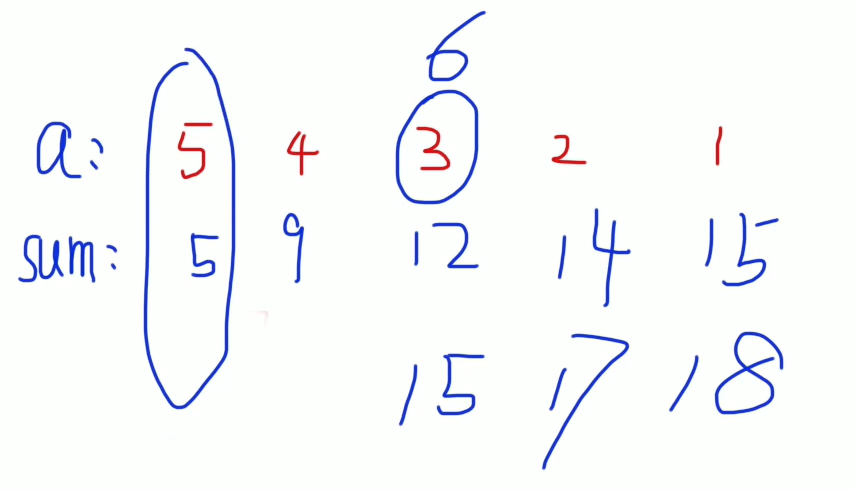 6
a: 5 4 3 2 1
sum: 5 9 12 14 15
15 17 18